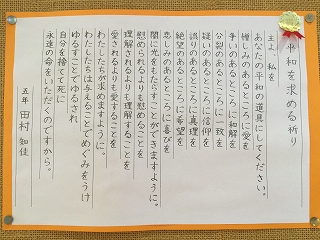 平和を求める祈り
主よ、私を
あなたの平和の道具にしてください。
憎しみのあるところに愛を
争いのあるところに和解を
分裂のあるところに一致を
疑いのあるところに信仰を
誤りのあるところに真理を
絶望のあるところに希望を
悲しみのあるところに喜びを
闇に光をもたらすことができますように。
慰められるよりも慰めることを
理解されるよりも理解することを
愛されるよりも愛することを
わたしたちが求めますように。
わたしたちは与えることでめぐみをうけ
ゆるすことでゆるされ
自分を捨てて死に
永遠の命をいただくのですから。
五年 田村 知佳